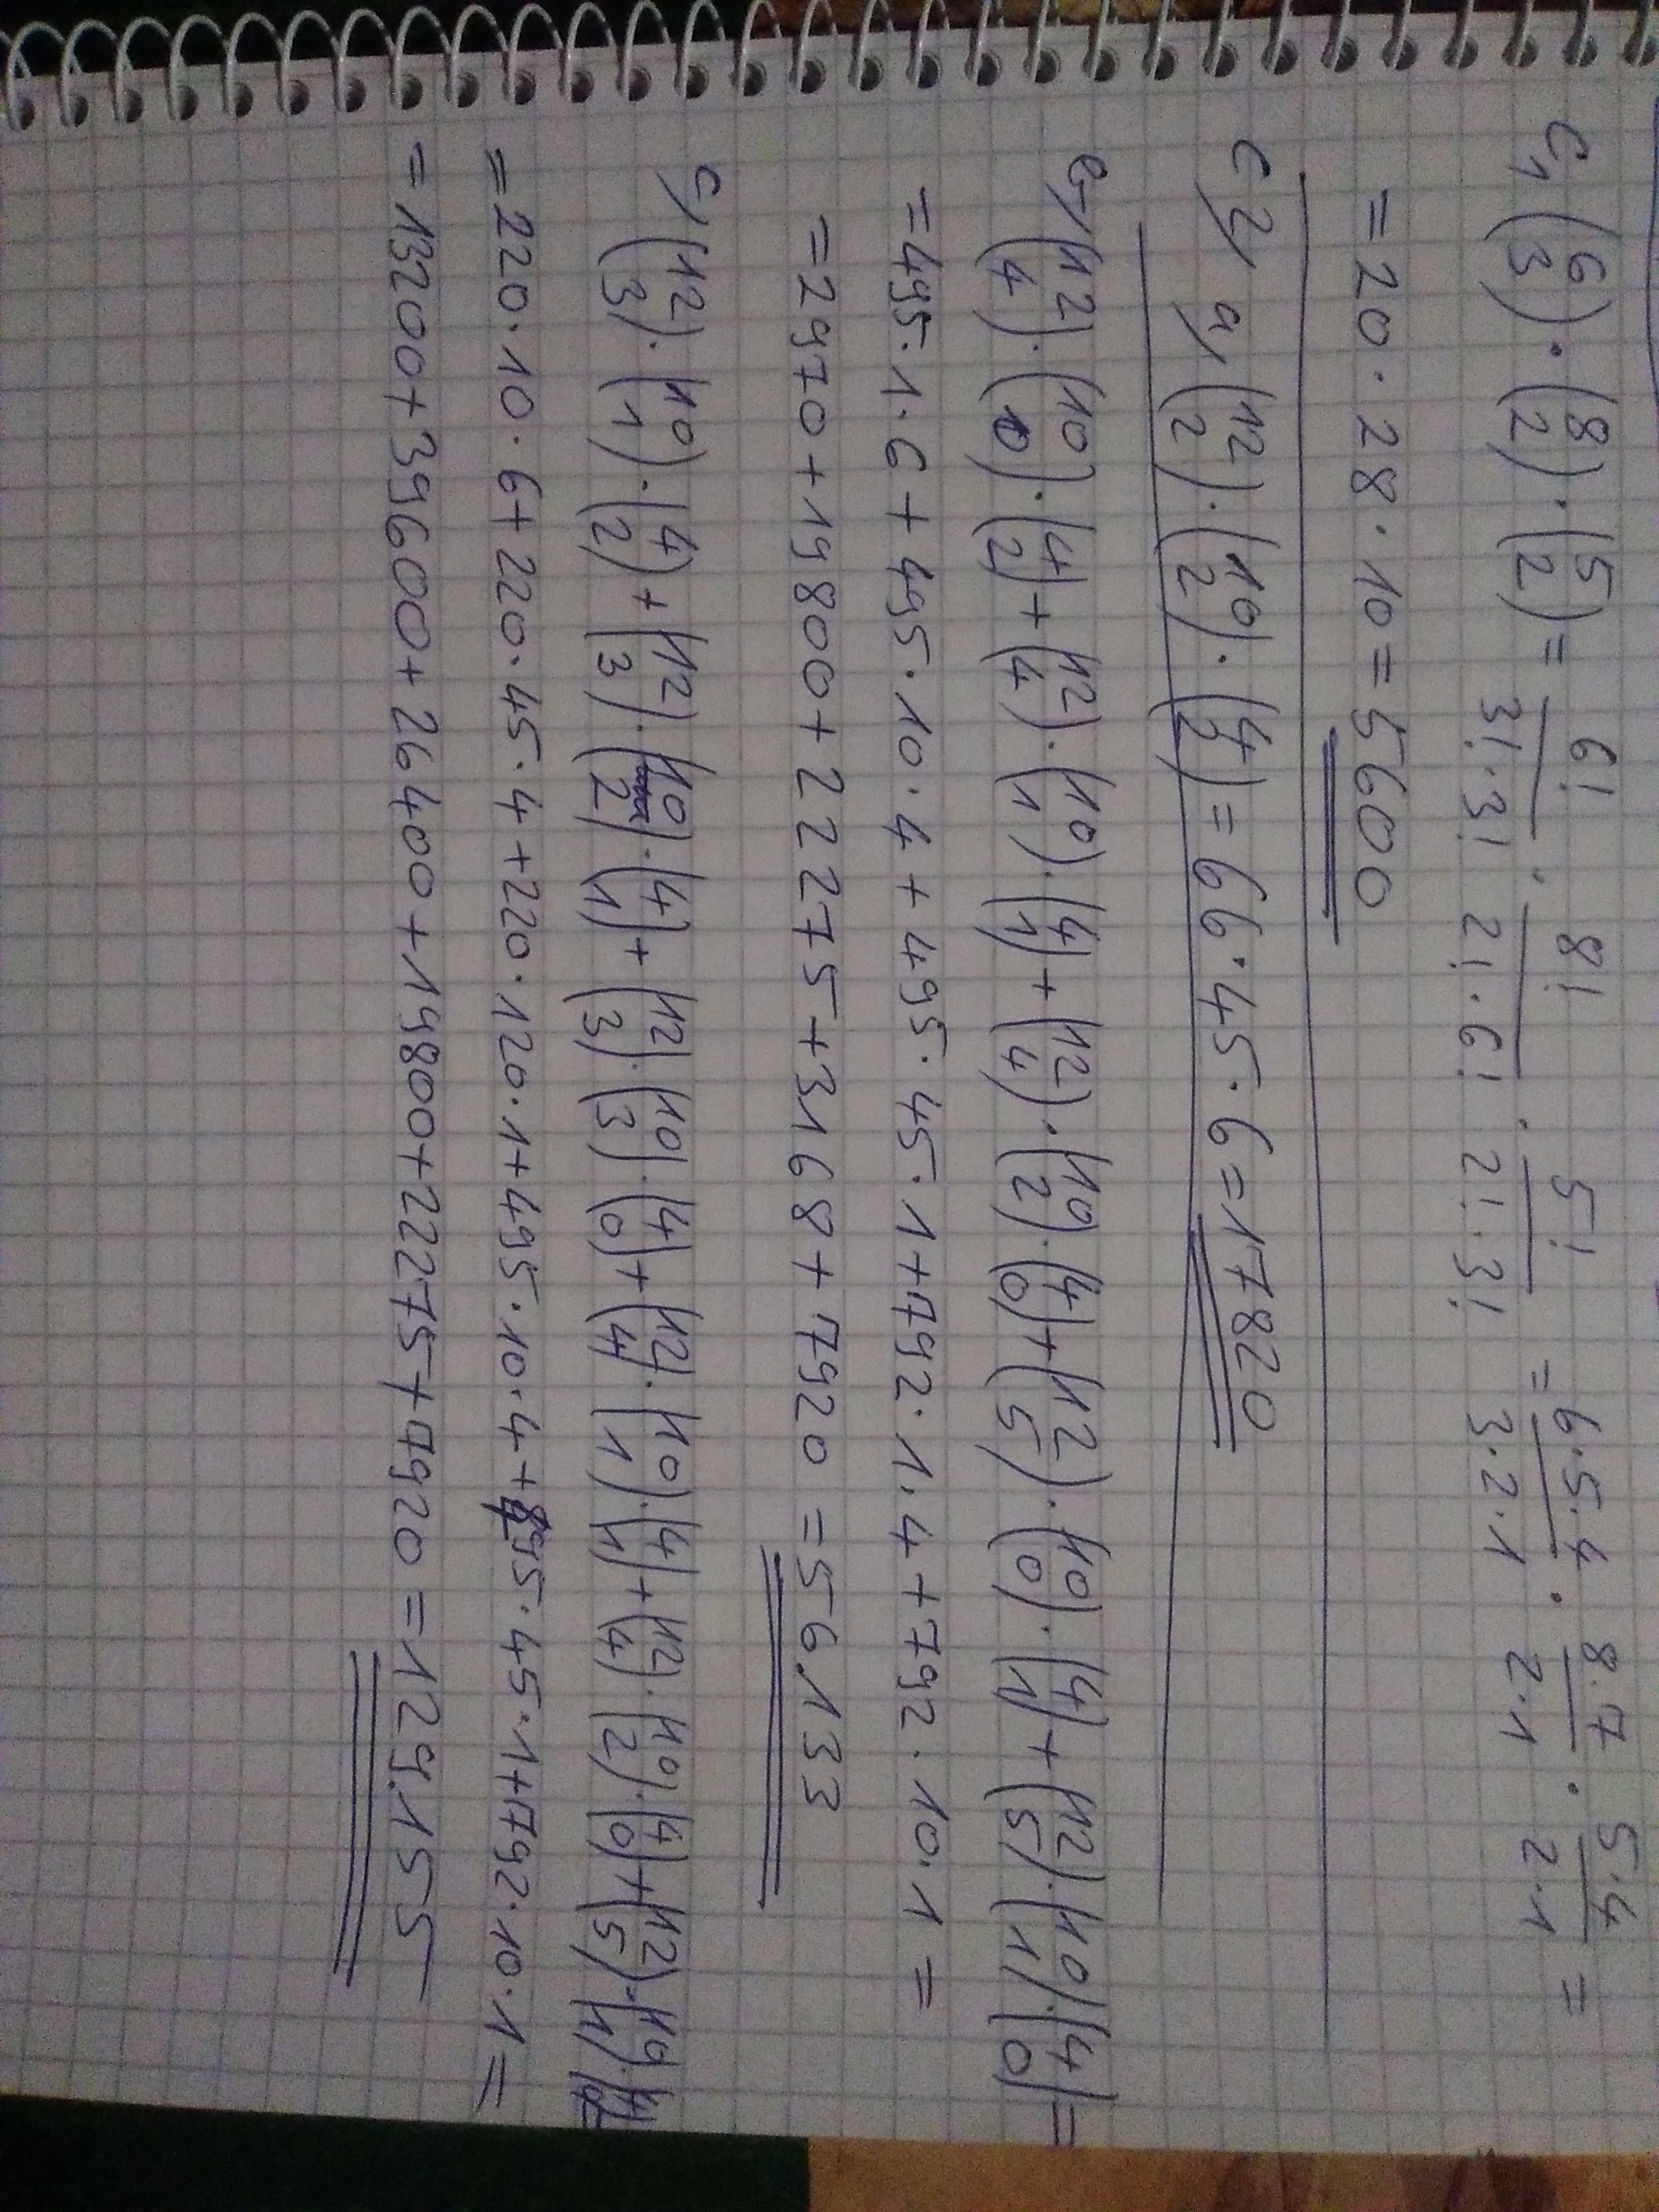 c, (6 3) · (8 2) · (5 2) = 6!/3!·3! · 8!/2!·6! · 5!/2!·3! = 6·5·4/3·2·1 · 8·7/2·1 · 5·4/2·1 =
= 20 · 28 · 10 = 5600
a, (12 2) · (10 2) · (4 2) = 66 · 45 · 6 = 17820
(12 4) · (10 0) · (4 2) + (12 4) · (10 1) · (4 1) + (12 4) · (10 2) · (4 0) + (12 5) · (10 0) · (4 1) + (12 5) · (10 1) · (4 0) =
= 495 · 1 · 6 + 495 · 10 · 4 + 495 · 45 · 1 + 792 · 1 · 4 + 792 · 10 · 1 =
= 2970 + 19800 + 22275 + 3168 + 7920 = 56.133
c, (12 3) · (10 1) · (4 2) + (12 3) · (10 2) · (4 1) + (12 3) · (10 3) · (4 0) + (12 4) · (10 1) · (4 1) + (12 4) · (10 2) · (4 0) + (12 5) · (10 1) ·
= 220 · 10 · 6 + 220 · 45 · 4 + 220 · 120 · 1 + 495 · 10 · 4 + 495 · 45 · 1 + 792 · 10 · 1 =
= 13200 + 39600 + 26400 + 19800 + 22275 + 7920 = 129.155